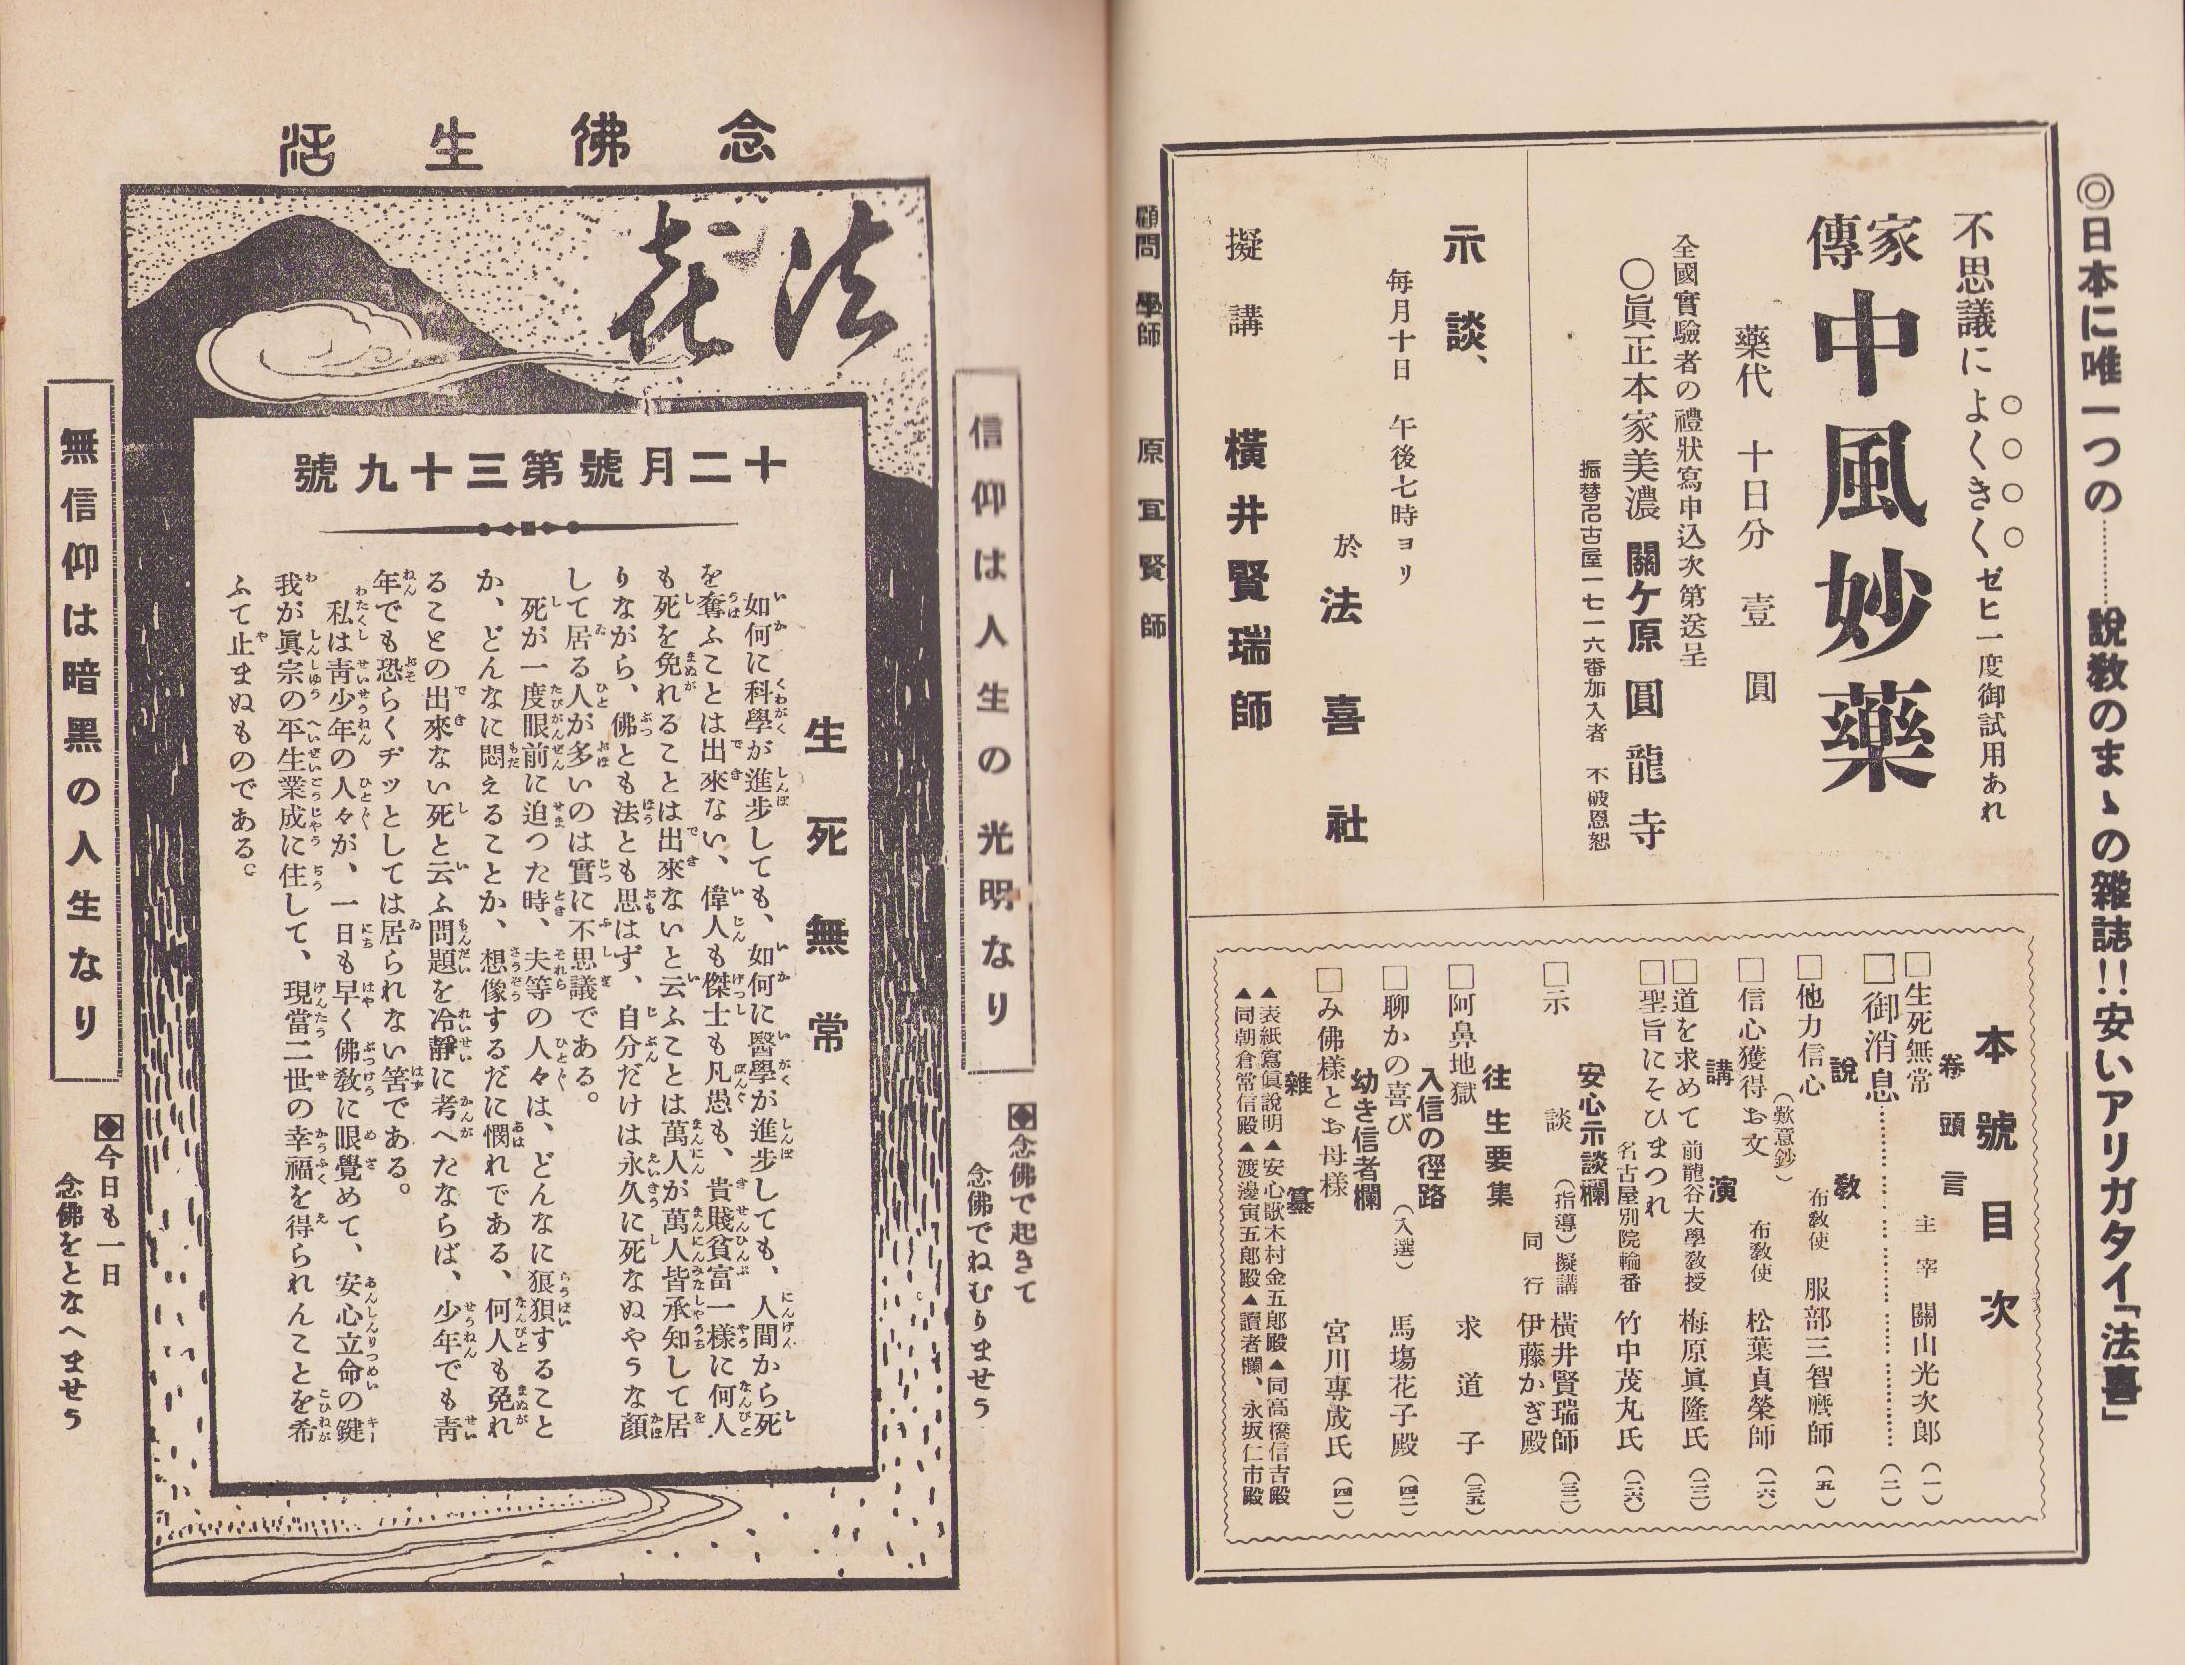 ◎日本に唯一つの………說敎のまゝの雜誌!!安いアリガタイ「法喜」
不思議によくきくゼヒ一度御試用あれ
家傳
中風妙藥
藥代 十日分 壹圓
全國實驗者の禮狀寫申込次第送呈
○眞正本家美濃 關ケ原 圓龍寺
振替名古屋一七一六番加入者 不破恩恕
示談、
每月十日 午後七時ヨリ
於 法喜社
擬講 橫井賢瑞師
顧問 學師 原宜賢師
本號目次
卷頭言
□生死無常 主宰 關山光次郎 (一)
□御消息……………………………(二)
說敎
□他力信心(歎意鈔) 布敎使 服部三智麿師 (五)
□信心獲得お文 布敎使 松葉貞榮師 (一六)
講演
□道を求めて 前龍谷大學敎授 梅原眞隆氏 (二三)
□聖旨にそひまつれ 名古屋別院輪番 竹中茂丸氏 (二六)
安心示談欄
□示談 (指導)擬講 橫井賢瑞師 (三三)
同行 伊藤かぎ殿
往生要集
□阿鼻地獄 求道子 (三五)
入信の徑路
□聊かの喜び (入選) 馬塲花子殿 (四二)
幼き信者欄
□み佛様とお母様 宮川專成氏 (四一)
雜纂
▲表紙寫眞說明▲安心歌木村金五郎殿▲同高橋信吉殿
▲同朝倉常信殿▲渡邊寅五郎殿▲讀者欄、永坂仁市殿
念佛生活
法喜
信仰は人生の光明なり
◆念佛で起きて
念佛でねむりませう
十二月號第三十九號
生死無常
如何に科學が進步しても、如何に醫學が進步しても、人間から死
を奪ふことは出來ない、偉人も傑士も凡愚も、貴賤貧富一樣に何人
も死を免れることは出來ないと云ふことは萬人が萬人皆承知して居
りながら、佛とも法とも思はず、自分だけは永久に死なぬやうな顏
して居る人が多いのは實に不思議である。
死が一度眼前に迫つた時、夫等の人々は、どんなに狼狽すること
か、どんなに悶えることか、想像するだに憫れである、何人も免れ
ることの出來ない死と云ふ問題を冷靜に考へたならば、少年でも靑
年でも恐らくヂッとしては居られない筈である。
私は靑少年の人々が、一日も早く佛敎に眼覺めて、安心立命の鍵
我が眞宗の平生業成に住して、現當二世の幸福を得られんことを希
ふて止まぬものである。
無信仰は暗黒の人生なり
◆今日も一日
念佛をとなへませう